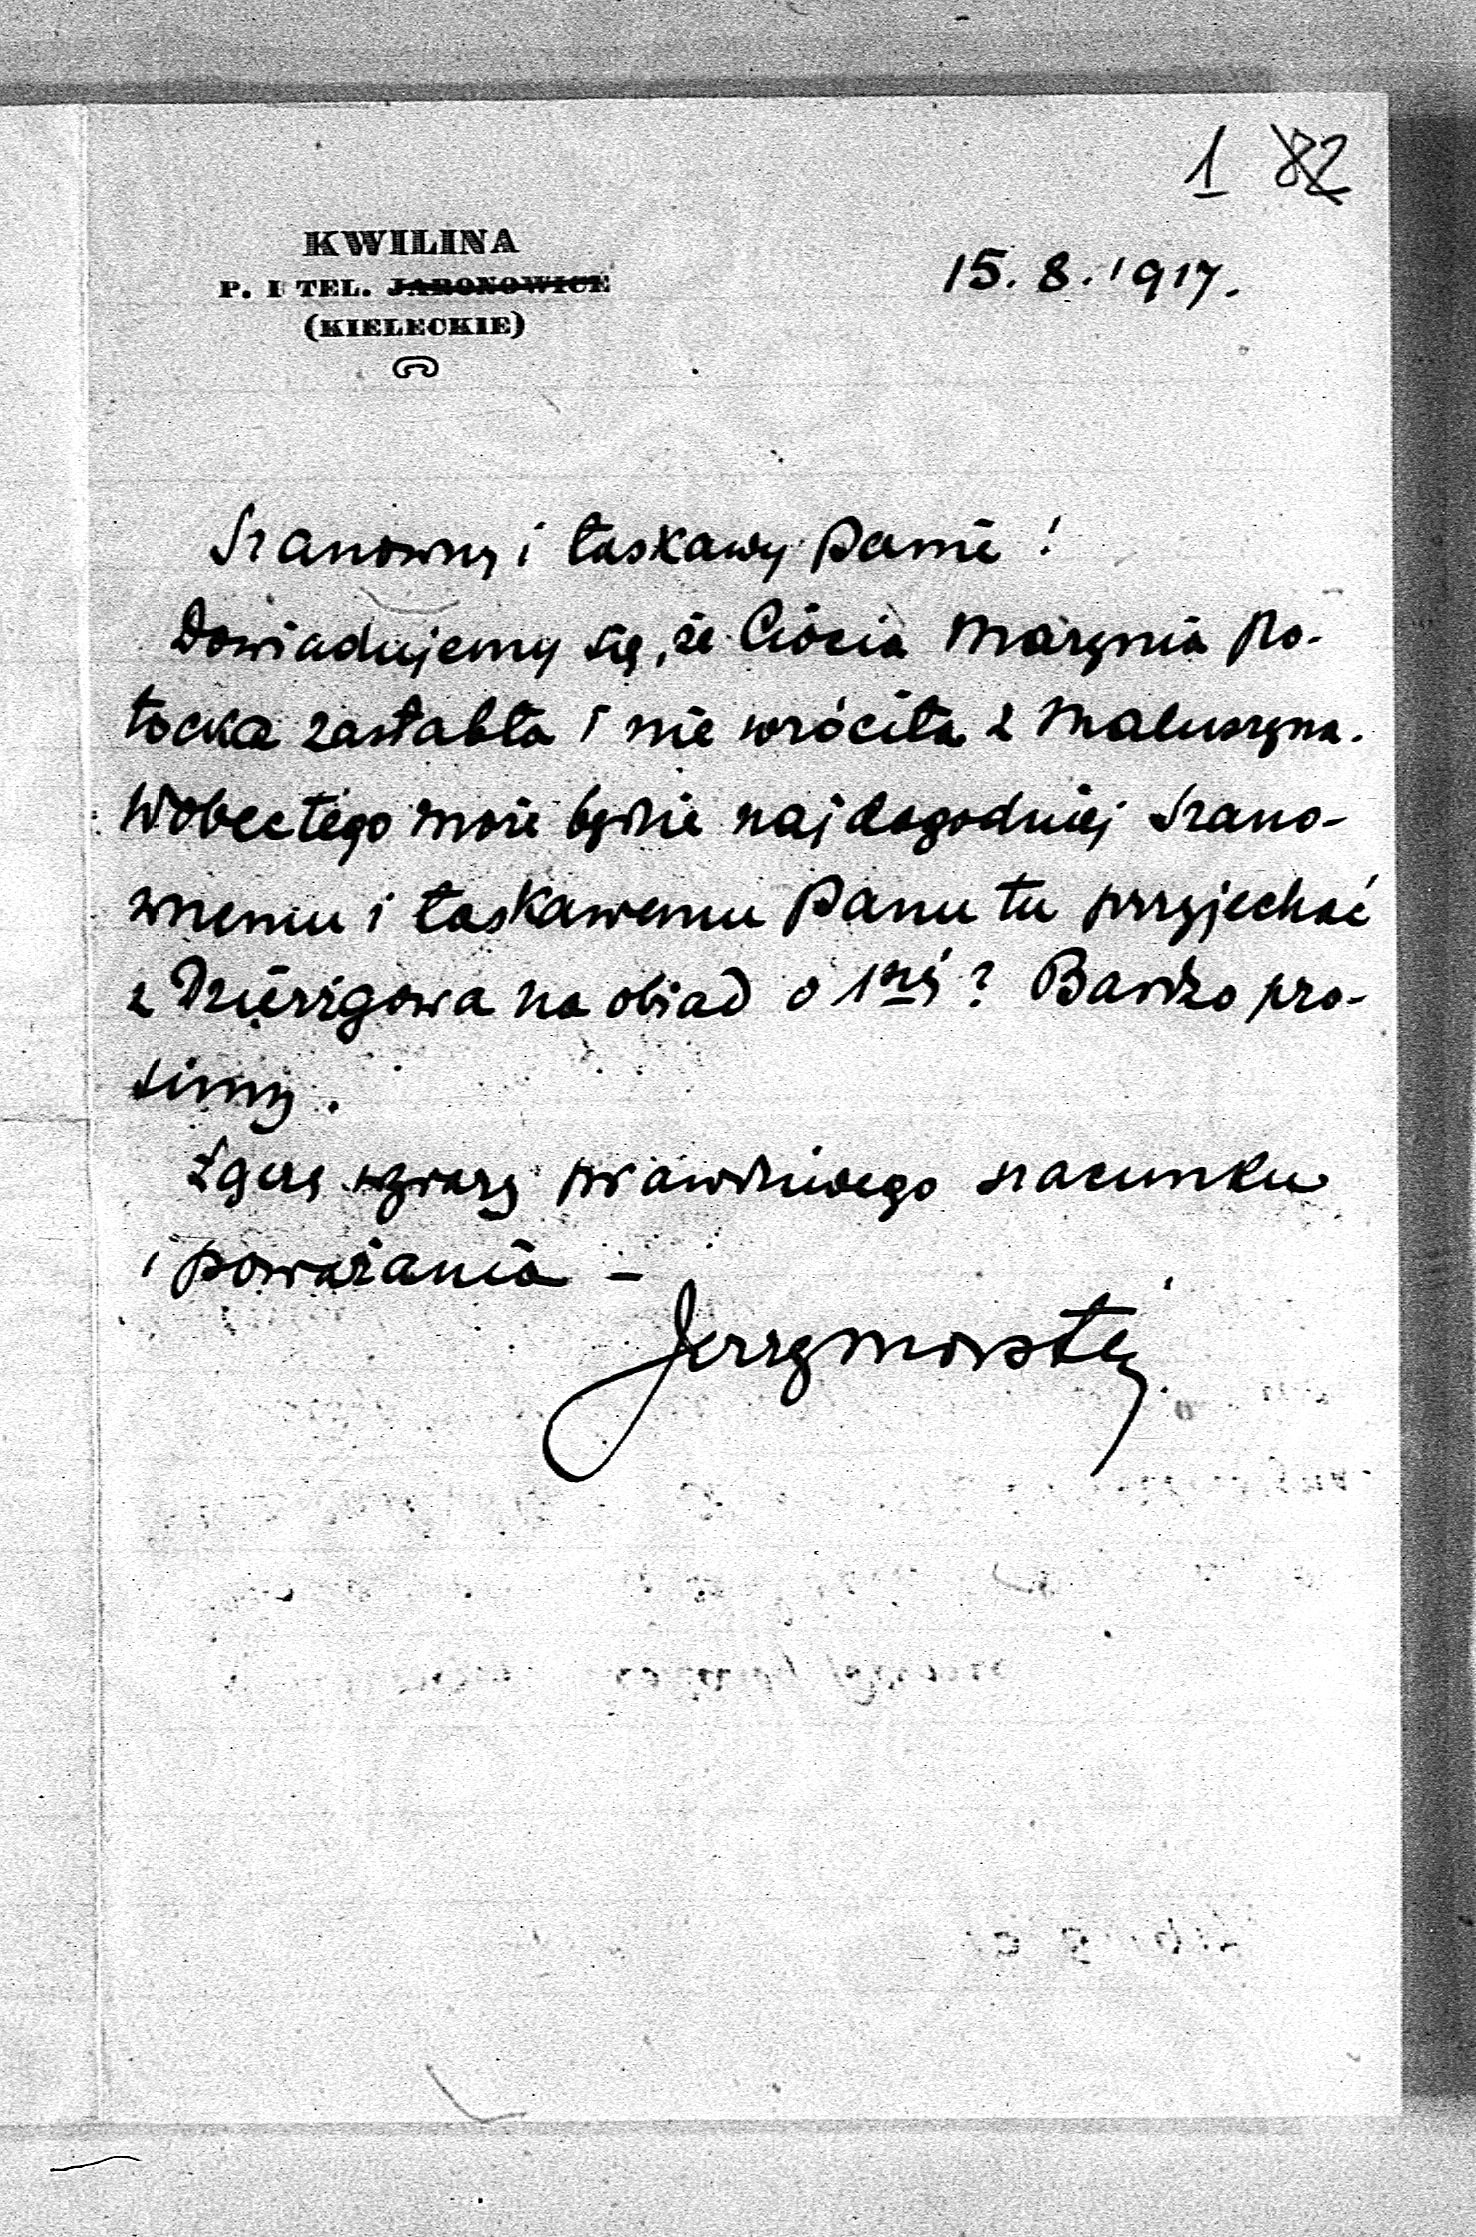 1 82
KWILINA
P. I TEL. JARONOWICE
(KIELECKIE)
15. 8. 1917.
Szanowny i łaskawy Panie!
Dowiadujemy się, że Ciocia Marynia Po-
tocka zasłabła i nie wróciła z Maluszyna.
Wobec tego może będzie najdogodniej Szano-
wnemu i łaskawemu Panu tu przyjechać
z Dzierzgowa na obiad o 1szej? Bardzo pro-
simy.
Łączę wyrazy prawdziwego szacunku
i poważania –